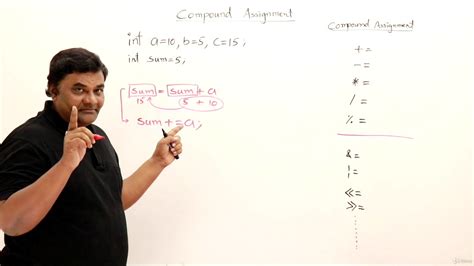 Compound Assignment
int a=10, b=5, c=15;
int sum=5;
sum = sum + a
15 5 + 10
sum += a;
Compound Assignment
+=
-=
*=
/=
%=
&=
¦=
<<=
>>=